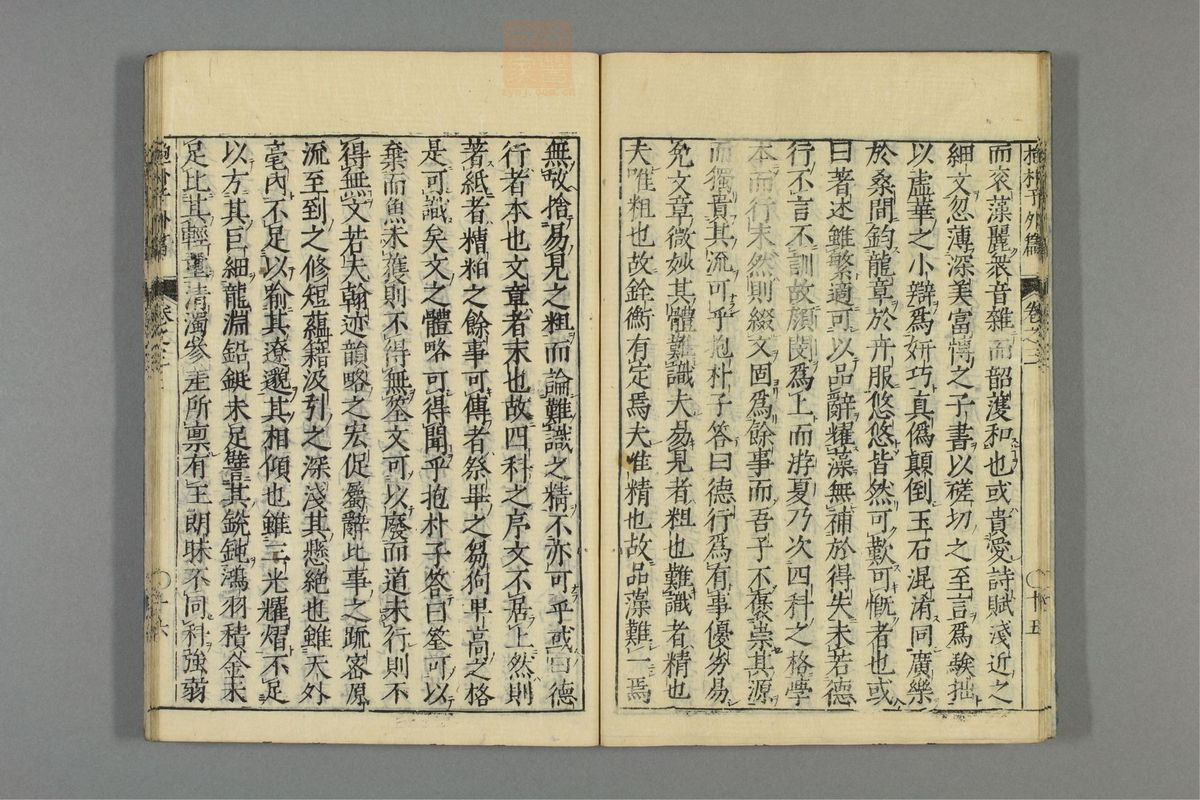 抱朴子外篇 卷之三 十五
而衮藻麗衆音雜而韶濩和也或貴愛詩賦淺近之
細文忽薄深美富愽之子書以磋切之至言爲騃拙
以虛華之小辯爲妍巧真僞顛倒玉石混淆同廣樂
於桑間鈞龍章於卉服悠悠皆然可歎可慨者也或
曰著述雖繁適可以品辭耀藻無補於得失未若德
行不言不訓故顔閔爲上而游夏乃次四科之格學
本而行末然則綴文固爲餘事而吾子不襃崇其源
而獨貴其流可乎抱朴子答曰德行爲有事優劣易
免文章微妙其體難識夫易見者粗也難識者精也
夫唯粗也故銓衡有定焉夫唯精也故品藻難一焉
無故捨易見之粗而論難識之精不亦可乎或曰德
行者本也文章者末也故四科之序文不居上然則
著紙者糟粕之餘事可傳者祭畢之芻狗卑高之格
是可識矣文之體略可得聞乎抱朴子答曰筌可以
棄而魚未獲則不得無筌文可以廢而道未行則不
得無文若夫翰迹韻略之宏促屬辭比事之疏密原
流至到之修短蘊籍汲引之深淺其懸絶也雖天外
毫內不足以喻其遼邈其相傾也雖三光耀熠不足
以方其巨細龍淵鉛鋌未足譬其銳鈍鴻羽積金未
足比其輕重清濁參差所禀有主朗昧不同科強弱
抱朴子外篇 卷之三 十六